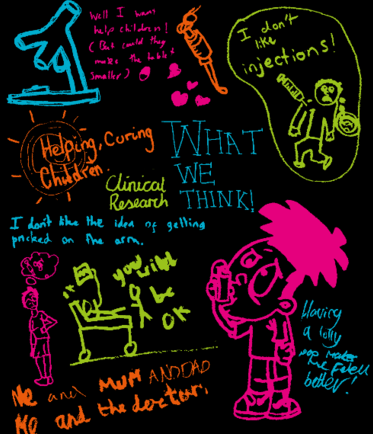 Well I want
help children!
(But could they
make the tablets
smaller)
I don't
like
injections!
Helping, Curing
Children.
Clinical
Research
WHAT
WE
THINK!
I don't like the idea of getting
pricked on the arm.
you will
be
OK
Having
a lolly
pop makes
me feel
better!
Me and MUM AND DAD
and the doctor.